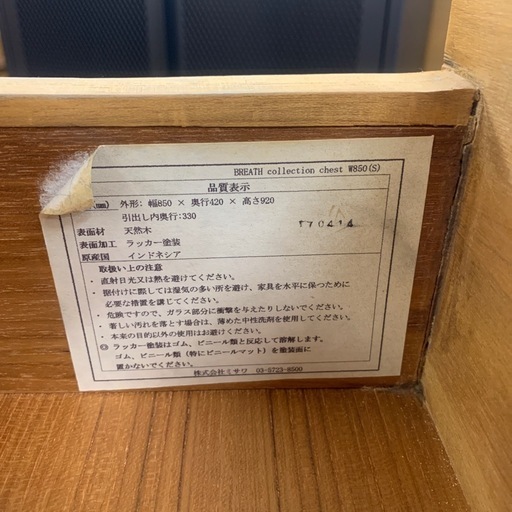 BREATH collection chest W850(S)
品質表示
mm) 外形: 幅850 × 奥行420 × 高さ920
引出し内奥行:330
表面材 天然木
表面加工 ラッカー塗装
原産国 インドネシア
取扱い上の注意
・直射日光又は熱を避けてください。
・据付けに際しては湿気の多い所を避け、家具を水平に保つために
必要な措置を講じてください。
・危険ですので、ガラス部分に衝撃を与えたりしないでください。
・著しい汚れを落とす場合は、薄めた中性洗剤を使用してください。
・本来の目的以外の使用はお避けください。
◎ ラッカー塗装はゴム、ビニール類と反応して溶解します。
ゴム、ビニール類(特にビニールマット)を塗装面に
置かないでください。
株式会社ミサワ 03-5723-8500